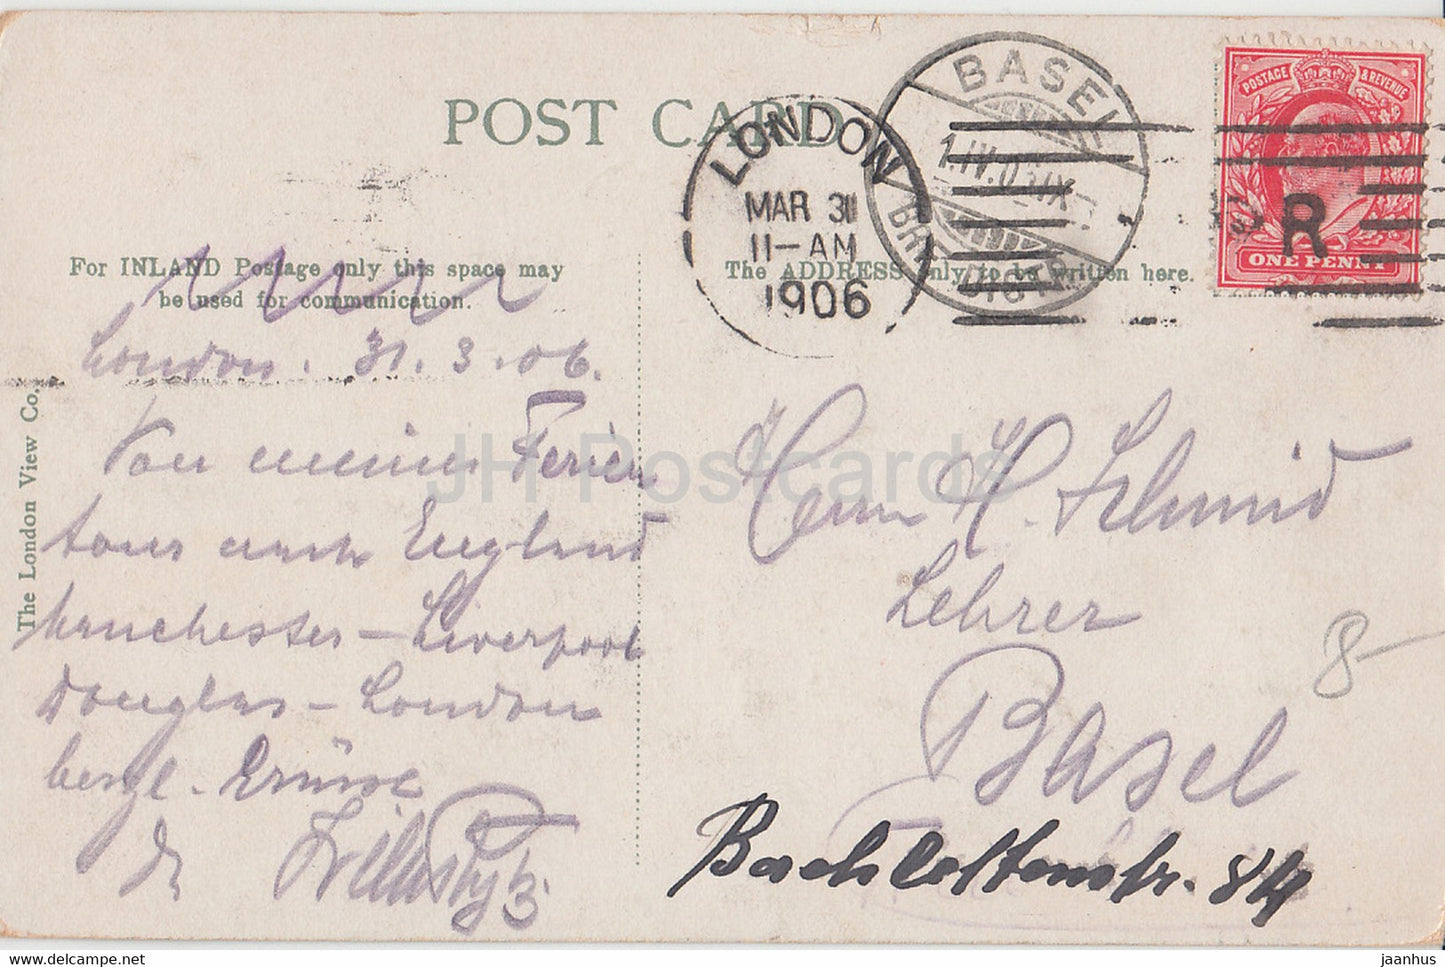 POST CARD
LONDON
MAR 31
11-AM
1906
BASEL
POSTAGE & REVENUE
R
ONE PENNY
For INLAND Postage only this space may
be used for communication.
The ADDRESS only to be written here.
The London View Co.
London. 31.3.06.
Von meiner Ferien
tour nach England
Manchester – Liverpool
Douglas – London
herzl. Grüsse
Herrn H. Schmid
Lehrer
Basel
Bachlettenstr. 84
8–
JH Postcards
delcampe.net
jaanhus